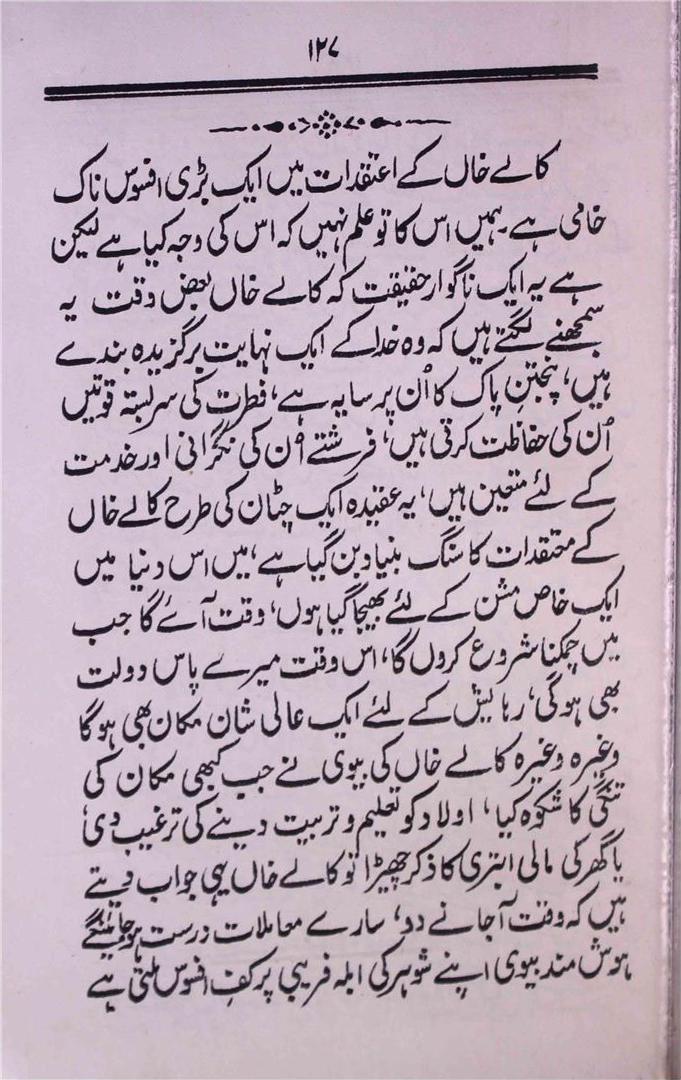 ۱۲۷
کالے خاں کے اعتقدات میں ایک بڑی افسوس ناک
خامی ہے۔ ہمیں اس کا تو علم نہیں کہ اس کی وجہ کیا ہے لیکن
ہے یہ ایک ناگوار حقیقت کہ کالے خاں بعض وقت یہ
سمجھنے لگتے ہیں کہ وہ خدا کے ایک نہایت برگزیدہ بندے
ہیں، پنجتن پاک کا اُن پر سایہ ہے، فطرت کی سربستہ قوتیں
اُن کی حفاظت کرتی ہیں، فرشتے اُن کی نگرانی اور خدمت
کے لئے متعین ہیں، یہ عقیدہ ایک چٹان کی طرح کالے خاں
کے معتقدات کا سنگ بنیاد بن گیا ہے، میں اس دنیا میں
ایک خاص مشن کے لئے بھیجا گیا ہوں، وقت آئے گا جب
میں چمکنا شروع کروں گا، اس وقت میرے پاس دولت
بھی ہوگی، رہایش کے لئے ایک عالی شان مکان بھی ہوگا
وغیرہ وغیرہ کالے خاں کی بیوی نے جب کبھی مکان کی
تنگی کا شکوہ کیا، اولاد کو تعلیم و تربیت دینے کی ترغیب دی
یا گھر کی مالی ابتری کا ذکر چھیڑا تو کالے خاں یہی جواب دیتے
ہیں کہ وقت آجانے دو، سارے معاملات درست ہو جائینگے
ہوش مند بیوی اپنے شوہر کی ابلہ فریبی پر کفِ افسوس ملتی ہے